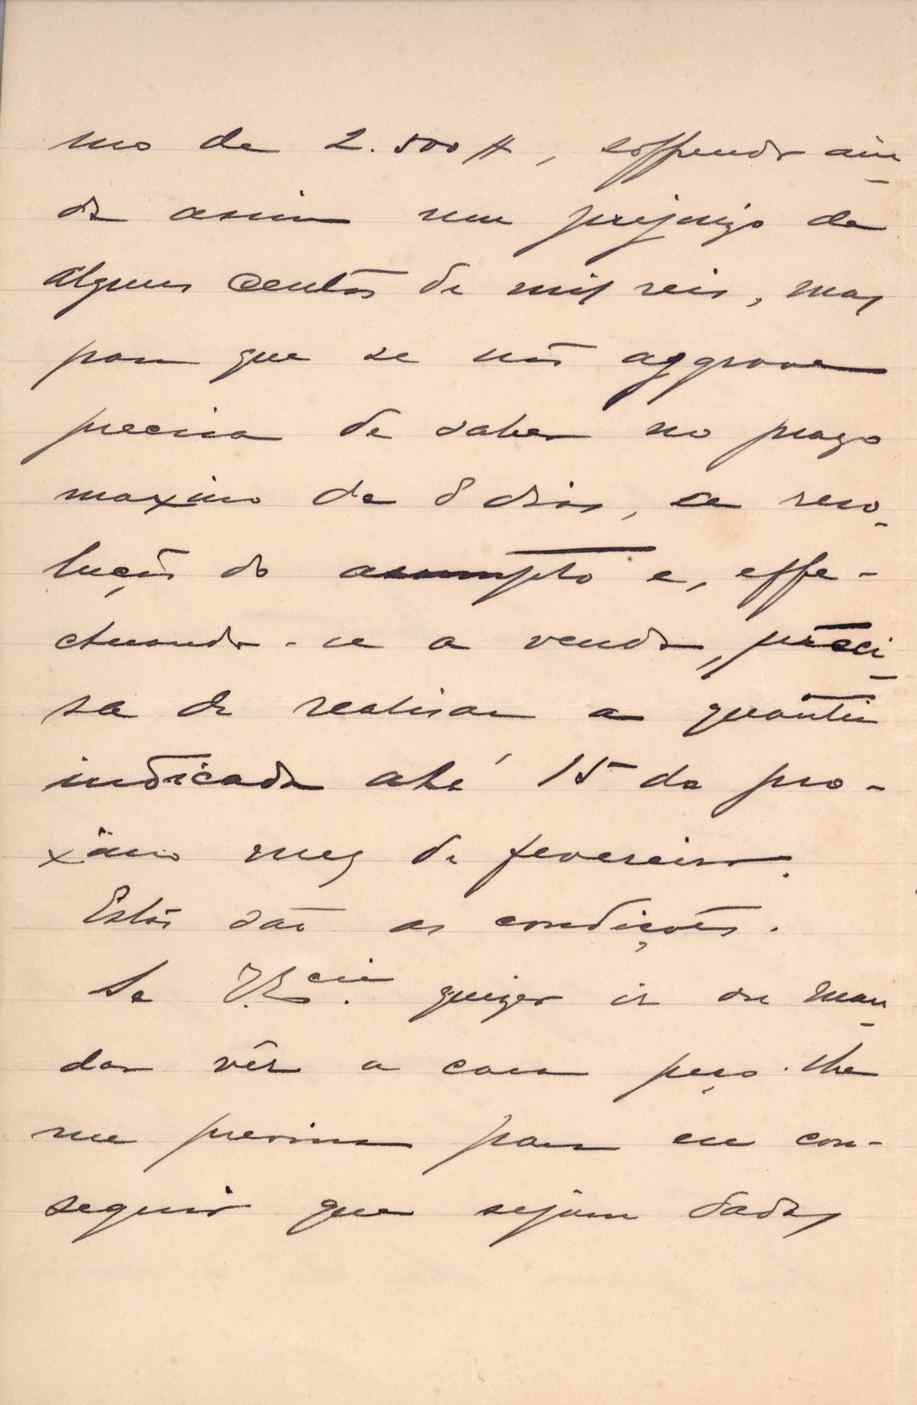 mo de 2.500$, soffrendo ain-
da assim um prejuizo de
alguns centos de mil reis, mas
para que se não aggrave
precisa de saber no prazo
maximo de 8 dias, a reso-
lução do assumpto e, effe-
ctuando-se a venda, preci-
sa de realisar a quantia
indicada até 15 do pro-
ximo mez de fevereiro.
Estas são as condições.
Se V. Ex.cia quizer ir ou man-
dar vêr a casa peço-lhe
me previna para eu con-
seguir que sejam dadas